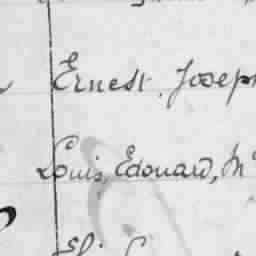 Ernest Joseph
Louis, Edouard, M